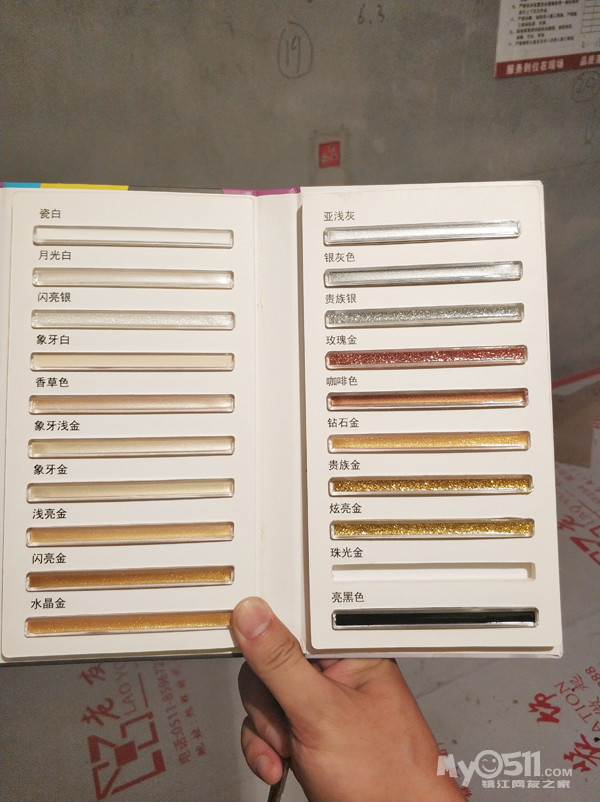 6.3
19
服务到位在现场
瓷白
月光白
闪亮银
象牙白
香草色
象牙浅金
象牙金
浅亮金
闪亮金
水晶金
亚浅灰
银灰色
贵族银
玫瑰金
咖啡色
钻石金
贵族金
炫亮金
珠光金
亮黑色
老友
My0511.com
镇江网友之家